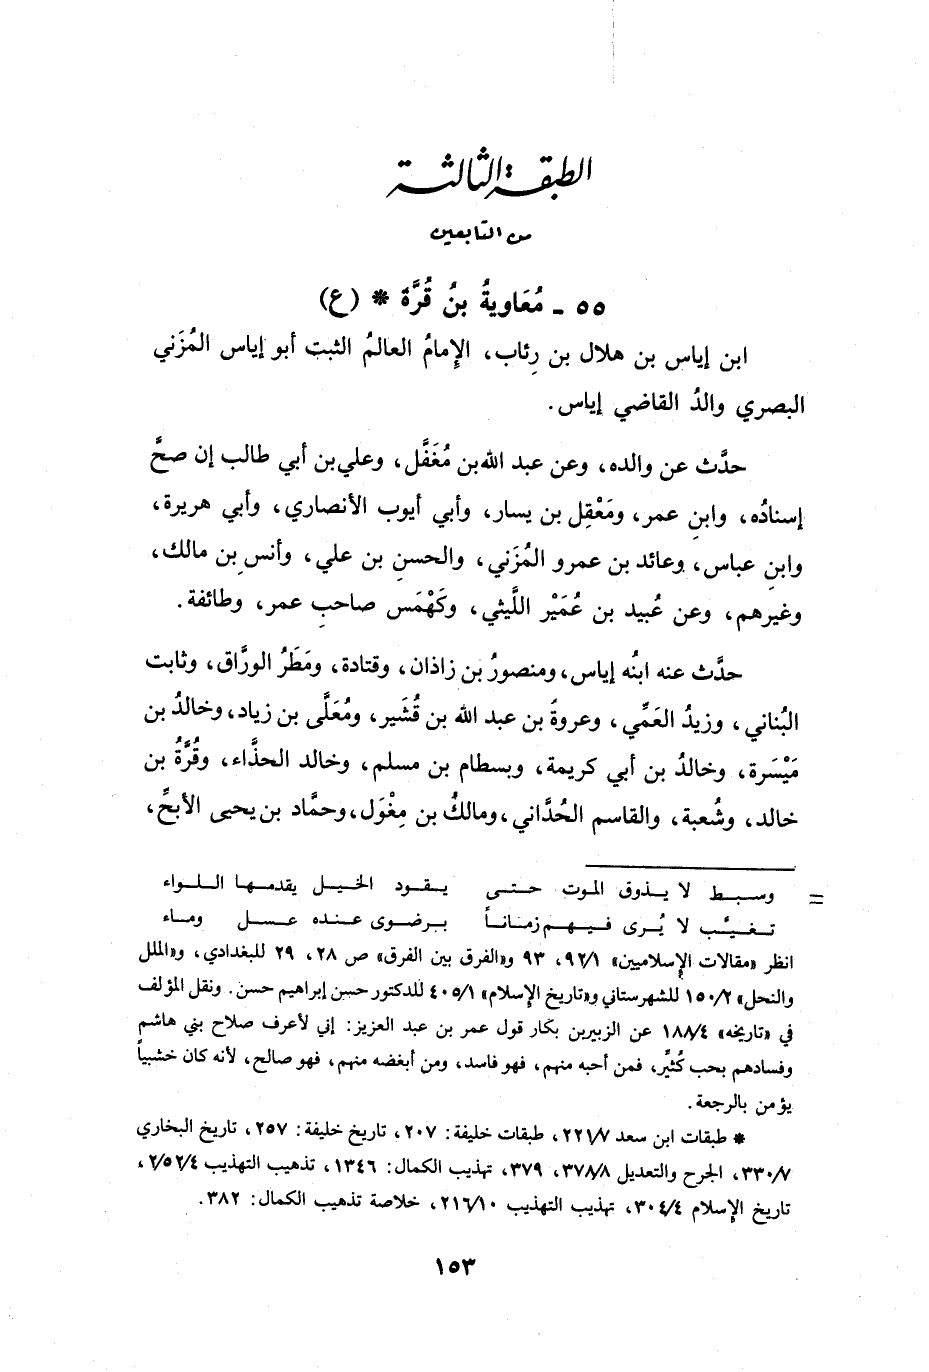 الطبقة الثالثة
من التابعين
٥٥ ـ مُعَاويةُ بنُ قُرَّة * (ع)
ابن إياس بن هلال بن رِئاب، الإِمامُ العالمُ الثبت أبو إياس المُزَني
البصري والدُ القاضي إياس.
حدَّث عن والده، وعن عبد الله بن مُغَفَّل، وعلي بن أبي طالب إن صحَّ
إسنادُه، وابنِ عمر، ومَعْقِل بن يسار، وأبي أيوب الأنصاري، وأبي هريرة،
وابنِ عباس، وعائد بن عمرو المُزَني، والحسنِ بن علي، وأنسِ بن مالك،
وغيرهم، وعن عُبيد بن عُمَيْر اللَّيثي، وكَهْمَس صاحبِ عمر، وطائفة.
حدَّث عنه ابنُه إياس، ومنصورُ بن زاذان، وقتادة، ومَطَرُ الورَّاق، وثابت
البُناني، وزيدُ العَمِّي، وعروةُ بن عبد الله بن قُشَير، ومُعلَّى بن زياد، وخالدُ بن
مَيْسَرة، وخالدُ بن أبي كريمة، وبسطام بن مسلم، وخالد الحذَّاء، وقُرَّةُ بن
خالد، وشُعبة، والقاسم الحُدَّاني، ومالكُ بن مِغْوَل، وحمَّاد بن يحيى الأبحِّ،
= وسبط لا يذوق الموت حتى يقود الخيل يقدمها اللواء
تغيَّب لا يُرى فيهم زماناً برضوى عنده عسل وماء
انظر «مقالات الإِسلاميين» ٩٢/١، ٩٣ و«الفرق بين الفرق» ص ٢٨، ٢٩ للبغدادي، و«الملل
والنحل» ١٥٠/٢ للشهرستاني و«تاريخ الإسلام» ٤٠٥/١ للدكتور حسن إبراهيم حسن. ونقل المؤلف
في «تاريخه» ١٨٨/٤ عن الزبيربن بكار قول عمر بن عبد العزيز: إني لأعرف صلاح بني هاشم
وفسادهم بحب كُثيِّر، فمن أحبه منهم، فهو فاسد، ومن أبغضه منهم، فهو صالح، لأنه كان خشبياً
يؤمن بالرجعة.
* طبقات ابن سعد ٢٢١/٧، طبقات خليفة: ٢٠٧، تاريخ خليفة: ٢٥٧، تاريخ البخاري
٣٣٠/٧، الجرح والتعديل ٣٧٨/٨، ٣٧٩، تهذيب الكمال: ١٣٤٦، تذهيب التهذيب ٢/٥٢/٤،
تاريخ الإِسلام ٣٠٤/٤، تهذيب التهذيب ٢١٦/١٠، خلاصة تذهيب الكمال: ٣٨٢.
١٥٣